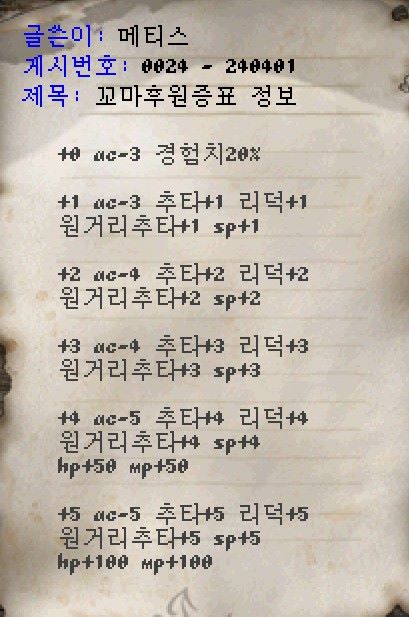 글쓴이: 메티스
게시번호: 0024 - 240401
제목: 꼬마후원증표 정보
+0 ac-3 경험치20%
+1 ac-3 추타+1 리덕+1
원거리추타+1 sp+1
+2 ac-4 추타+2 리덕+2
원거리추타+2 sp+2
+3 ac-4 추타+3 리덕+3
원거리추타+3 sp+3
+4 ac-5 추타+4 리덕+4
원거리추타+4 sp+4
hp+50 mp+50
+5 ac-5 추타+5 리덕+5
원거리추타+5 sp+5
hp+100 mp+100